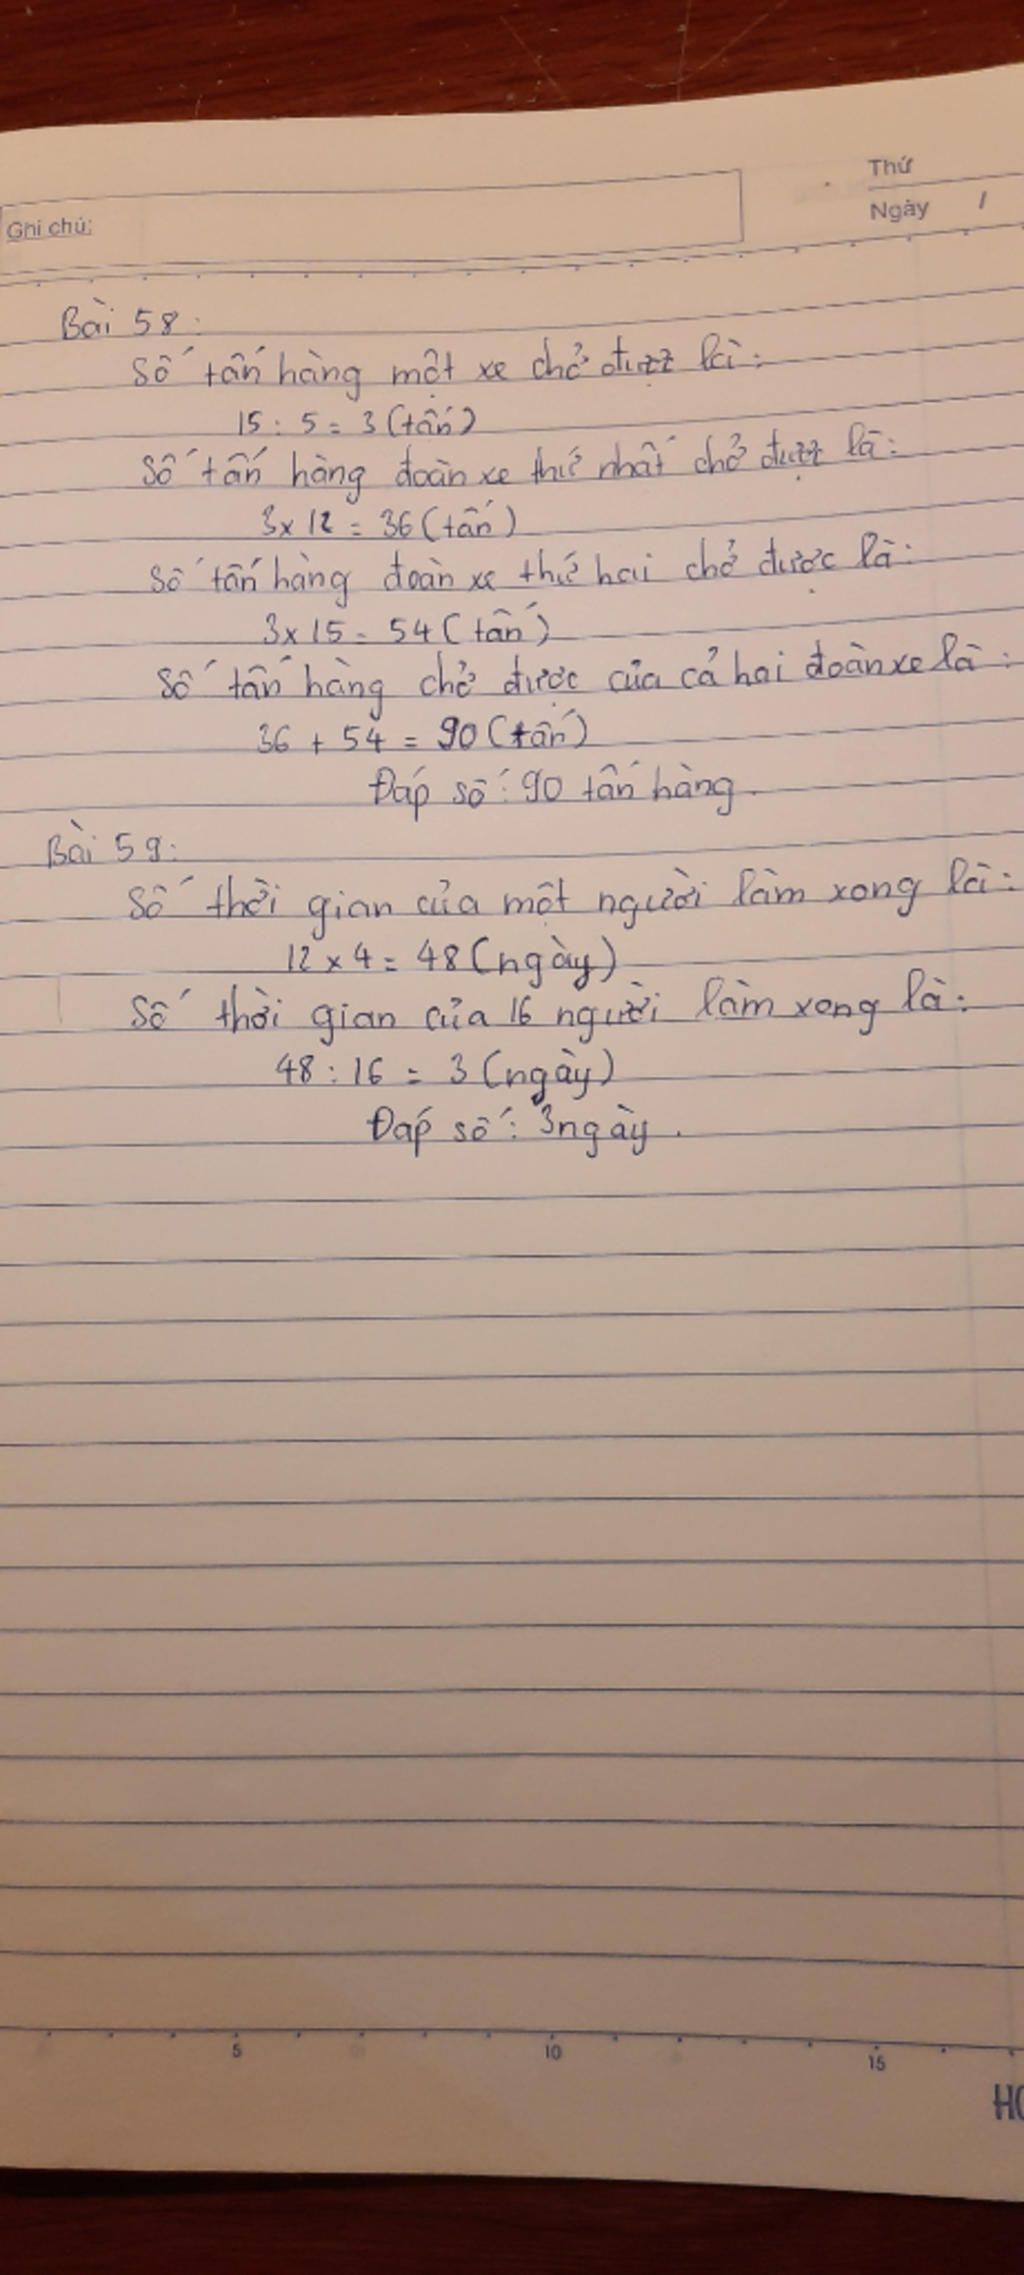 Thứ
Ghi chú:
Ngày /
Bài 58:
Số tấn hàng một xe chở được là:
15 : 5 = 3 (tấn)
Số tấn hàng đoàn xe thứ nhất chở được là:
3 x 12 = 36 (tấn)
Số tấn hàng đoàn xe thứ hai chở được là:
3 x 15 = 54 (tấn)
Số tấn hàng chở được của cả hai đoàn xe là:
36 + 54 = 90 (tấn)
Đáp số: 90 tấn hàng.
Bài 59:
Số thời gian của một người làm xong là:
12 x 4 = 48 (ngày)
Số thời gian của 16 người làm xong là:
48 : 16 = 3 (ngày)
Đáp số: 3 ngày.
5 10 15